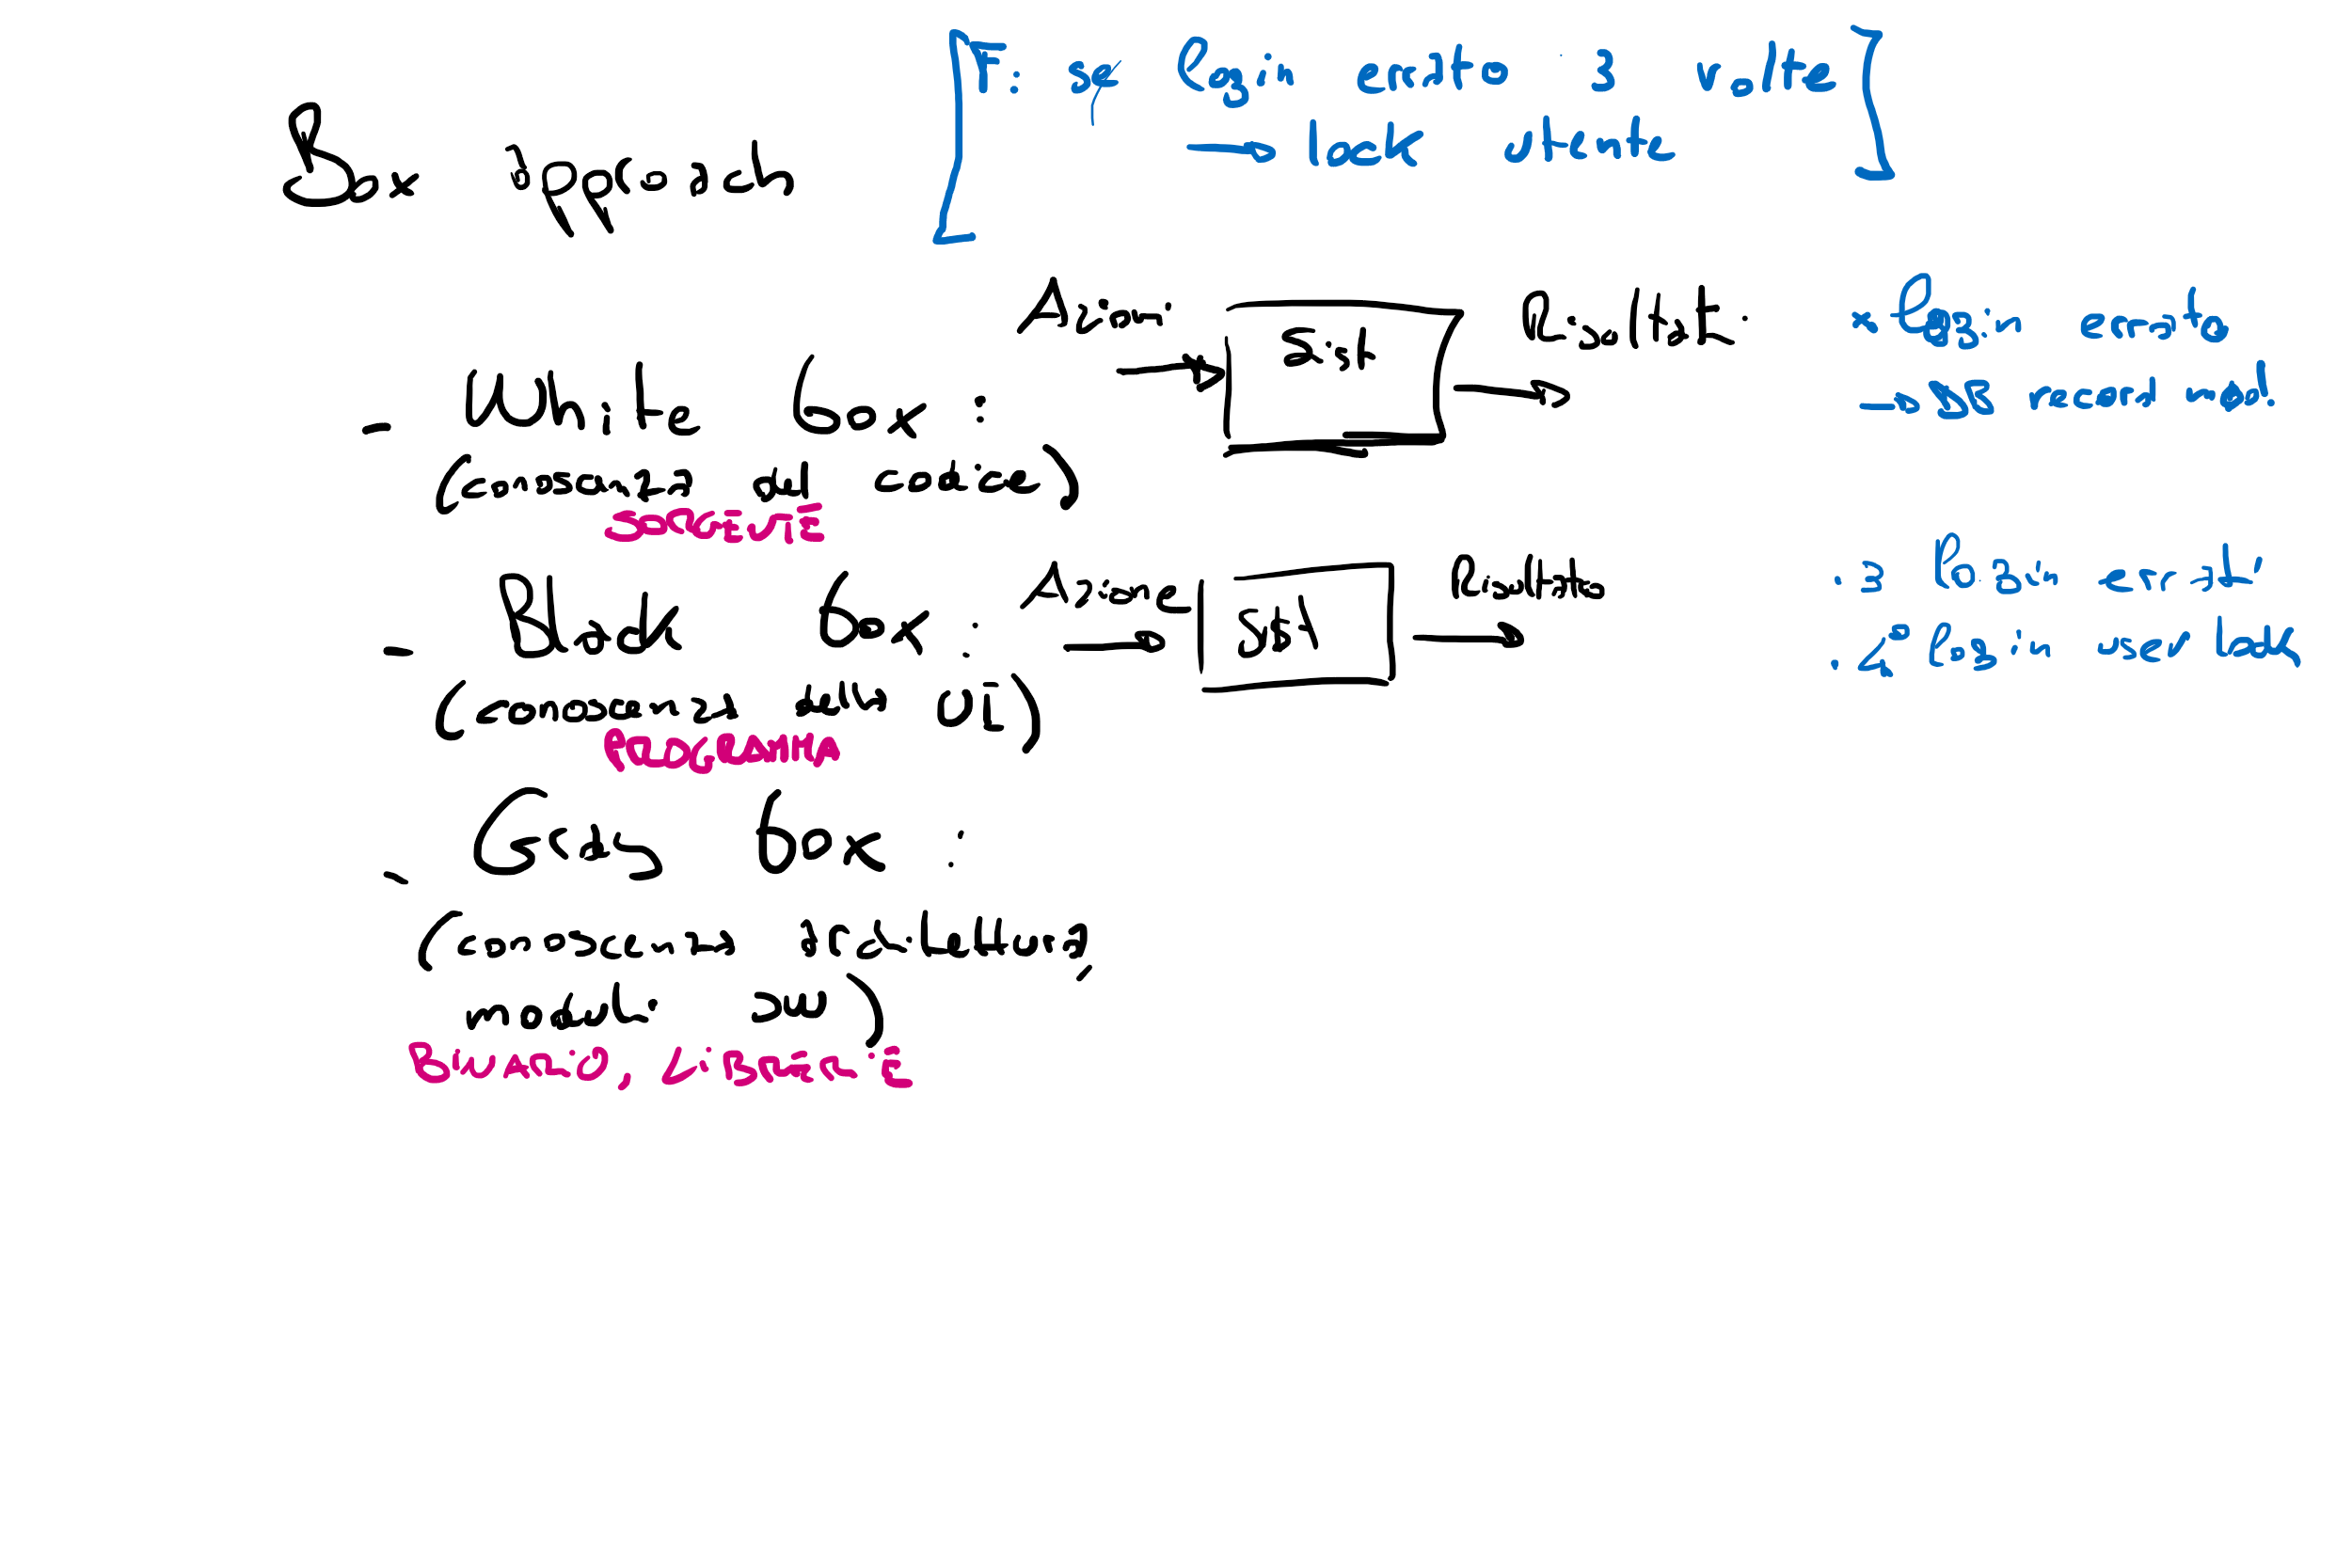 Box approach
F: se login errato 3 volte
→ lock utente
- White box:
(conoscenza del codice)
SORGENTE
Azioni
Sist
Risultati
* login errato
→ DB record mod.
- Black box:
(conoscenza della UI)
PROGRAMMA
Azione
Sist
Risultato
. 3 login errati
. 4° login user lock
- Grey box:
(conoscenza architettura,
moduli SW)
BINARIO, LIBRERIE